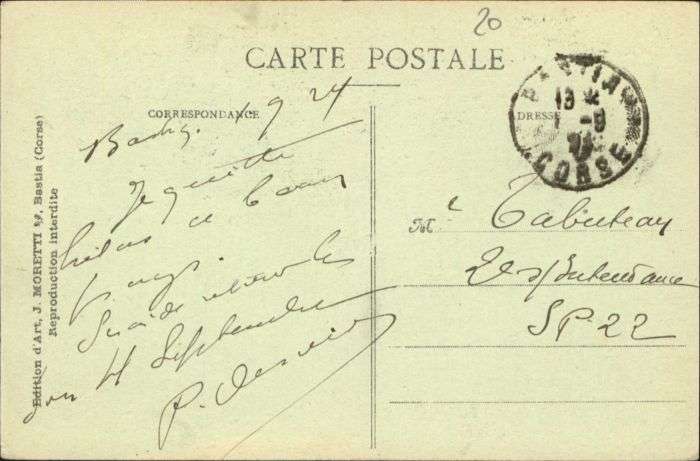 20
CARTE POSTALE
CORRESPONDANCE
ADRESSE
BASTIA
13
1 - 9
CORSE
1 9 24
Je quitte
hélas ce beau
pays.
Serai de retour les
4 Septembre
P.
Me Tabuteau
SP. 22
Edition d'Art, J. MORETTI, Bastia (Corse)
Reproduction interdite